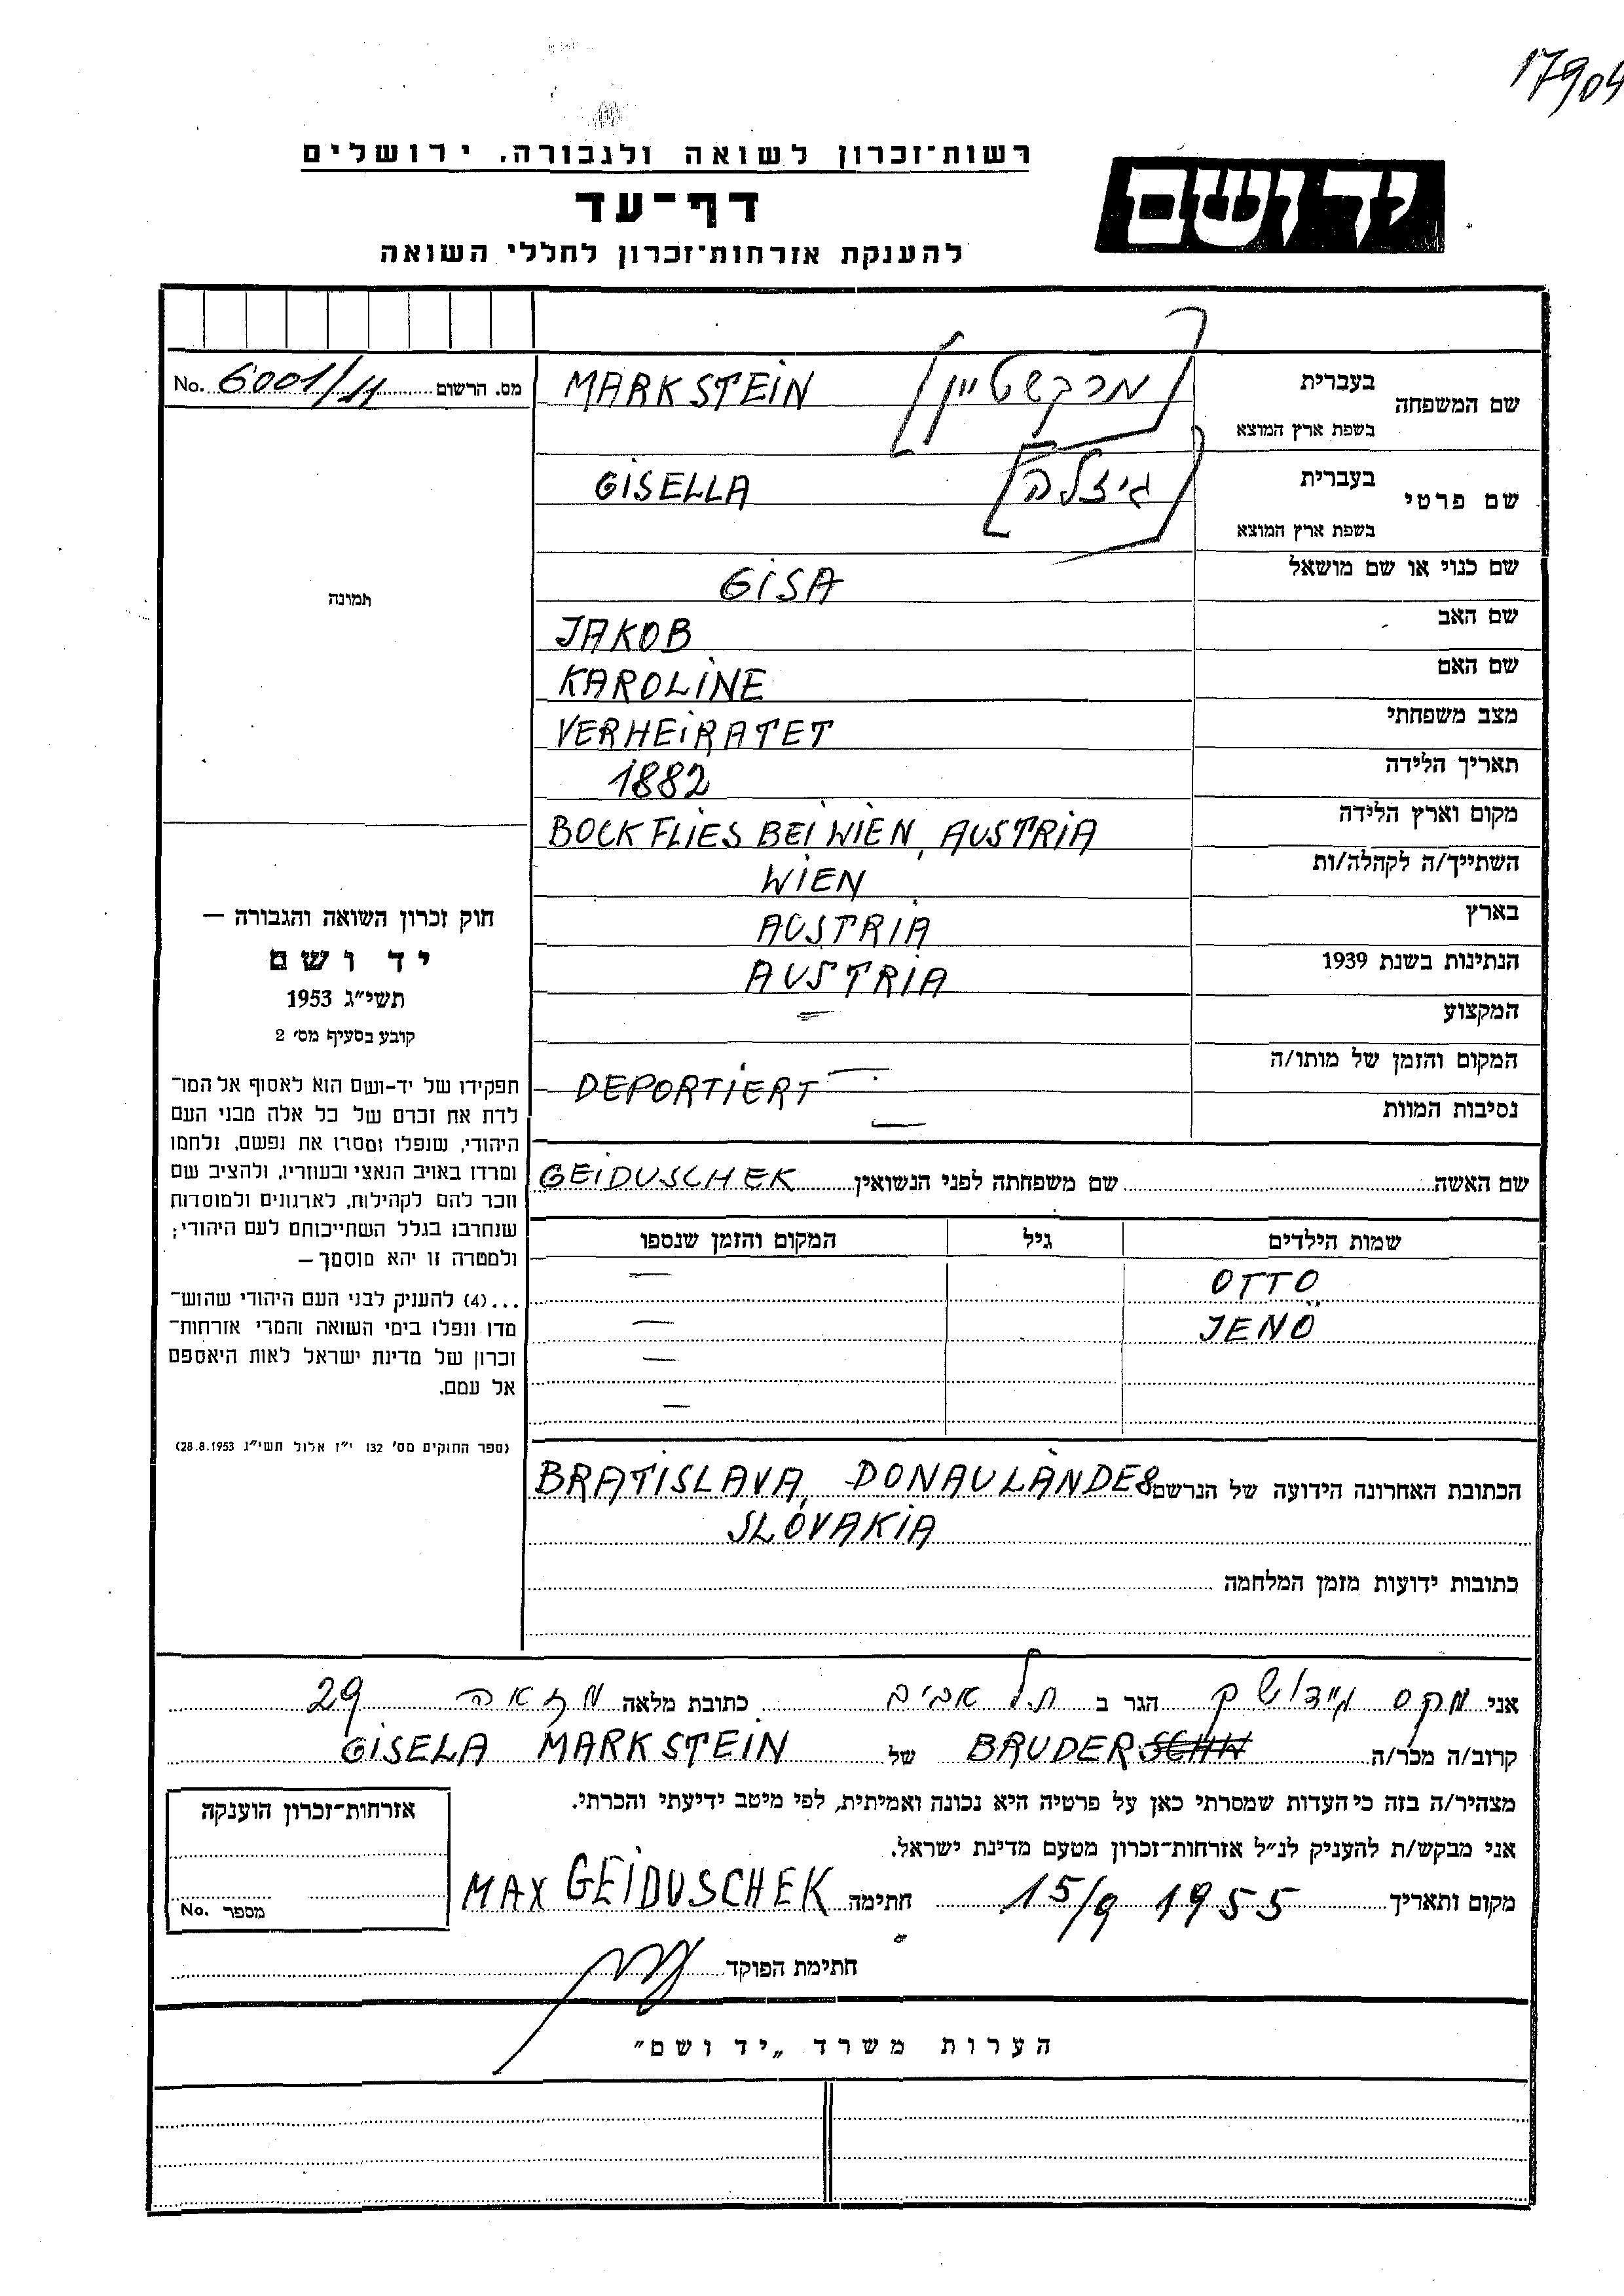 17904
רשות־זכרון לשואה ולגבורה, ירושלים
יד ושם
דף־עד
להענקת אזרחות־זכרון לחללי השואה
מס. הרשום 6001/11 No.
שם המשפחה בעברית [מרקשטיין] MARKSTEIN
בשפת ארץ המוצא
שם פרטי בעברית [גיזלה] GISELLA
בשפת ארץ המוצא
שם כנוי או שם מושאל GISA
תמונה
שם האב JAKOB
שם האם KAROLINE
מצב משפחתי VERHEIRATET
תאריך הלידה 1882
מקום וארץ הלידה BOCKFLIES BEI WIEN, AUSTRIA
השתייך/ה לקהלה/ות WIEN
בארץ AUSTRIA
הנתינות בשנת 1939 AUSTRIA
המקצוע —
המקום והזמן של מותו/ה DEPORTIERT —
נסיבות המוות —
חוק זכרון השואה והגבורה —
יד ושם
תשי״ג 1953
קובע בסעיף מס׳ 2
תפקידו של יד-ושם הוא לאסוף אל המו־
לדת את זכרם של כל אלה מבני העם
היהודי, שנפלו ומסרו את נפשם, נלחמו
ומרדו באויב הנאצי ובעוזריו, ולהציב שם
וזכר להם לקהילות, לארגונים ולמוסדות
שנחרבו בגלל השתייכותם לעם היהודי;
ולמטרה זו יהא מוסמך —
...(4) להעניק לבני העם היהודי שהוש־
מדו ונפלו בימי השואה והמרי אזרחות־
זכרון של מדינת ישראל לאות היאספם
אל עמם.
(ספר החוקים מס׳ 132 י״ז אלול תשי״ג 28.8.1953)
שם האשה שם משפחתה לפני הנשואין GEIDUSCHEK
שמות הילדים גיל המקום והזמן שנספו
OTTO —
JENÖ —
—
—
הכתובת האחרונה הידועה של הנרשם BRATISLAVA, DONAULÄNDE 8
SLOVAKIA
כתובות ידועות מזמן המלחמה
אני מקס גיידושק הגר ב תל אביב כתובת מלאה מזאה 29
קרוב/ה מכר/ה BRUDER של GISELA MARKSTEIN
מצהיר/ה בזה כי העדות שמסרתי כאן על פרטיה היא נכונה ואמיתית, לפי מיטב ידיעתי והכרתי.
אני מבקש/ת להעניק לנ״ל אזרחות־זכרון מטעם מדינת ישראל.
מקום ותאריך 15/9 1955 חתימה MAX GEIDUSCHEK
חתימת הפוקד
אזרחות־זכרון הוענקה
מספר No.
הערות משרד „יד ושם״